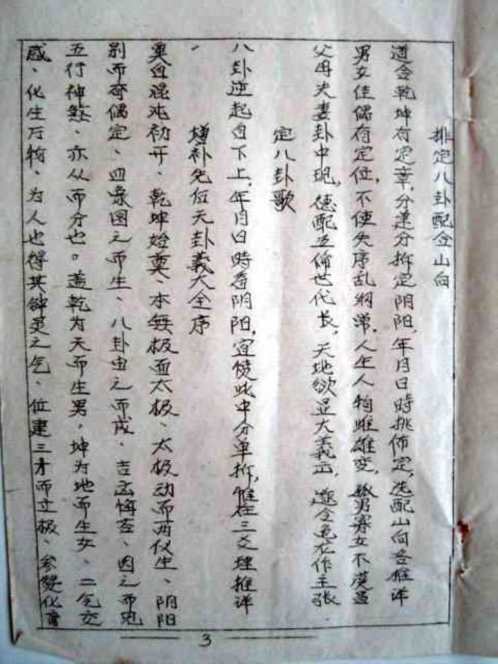 排定八卦配合山向
道合乾坤有定章,分莲分拆定阴阳,年月日時挑佈定,选配山向各推详
男女佳偶有定位,不使失序乱纲常,人生人物雌雄变,鳏男寡女不
父母夫妻卦中现,德配世代长,天地欲显大义,作主张
定八卦歌
八卦逆起自下上,年月日時各阴阳,宜從此中分单拆,惟在三爻理推详
增补先后天卦義大全序
奥自混沌初开、乾坤始奠、本無极而太极、太极动而两仪生、阴阳
别而奇偶定、四象因之而生、八卦由之而成、吉凶悔吝、因之而
五行神煞、亦从而分也。盖乾为天而生男,坤为地而生女、二气交
感、化生万物、为人也得其钟灵之气、位建三才而立极、参变化育
3